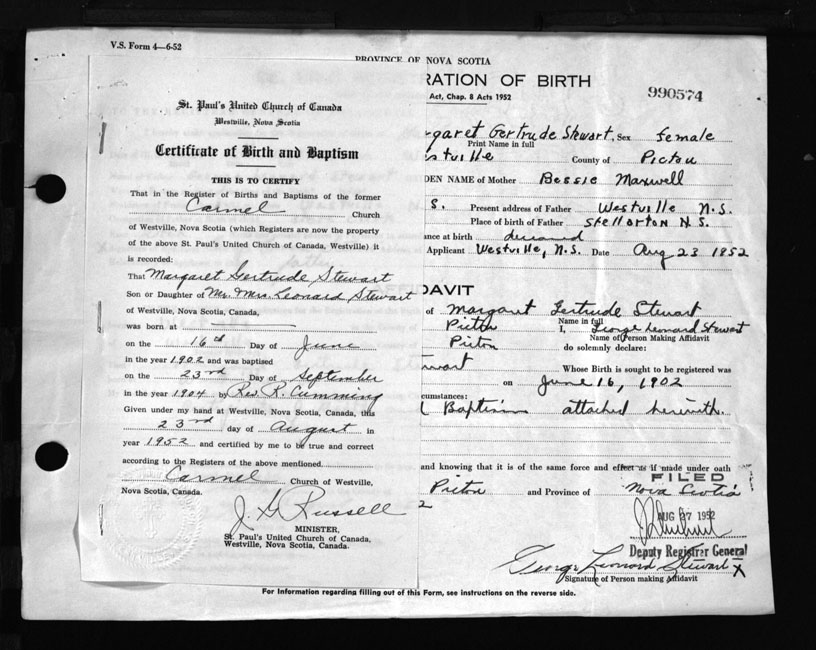 V.S. Form 4—6-52
PROVINCE OF NOVA SCOTIA
RATION OF BIRTH
Act, Chap. 8 Acts 1952
990574
St. Paul's United Church of Canada
Westville, Nova Scotia
Certificate of Birth and Baptism
THIS IS TO CERTIFY
That in the Register of Births and Baptisms of the former
Carmel Church
of Westville, Nova Scotia (which Registers are now the property
of the above St. Paul's United Church of Canada, Westville) it
is recorded:
That Margaret Gertrude Stewart
Son or Daughter of Mr. Mrs. Leonard Stewart
of Westville, Nova Scotia, Canada,
was born at
on the 16th Day of June
in the year 1902 and was baptised
on the 23rd Day of September
in the year 1904 by Rev. R. Cumming
Given under my hand at Westville, Nova Scotia, Canada, this
23rd day of August in
year 1952 and certified by me to be true and correct
according to the Registers of the above mentioned
Carmel Church of Westville,
Nova Scotia, Canada.
J. G. Russell
MINISTER,
St. Paul's United Church of Canada,
Westville, Nova Scotia, Canada.
rgaret Gertrude Stewart, Sex female
Print Name in full
stville County of Pictou
DEN NAME of Mother Bessie Maxwell
S. Present address of Father Westville N.S.
Place of birth of Father Stellarton N.S.
ance at birth deceased
Applicant Westville, N.S. Date Aug 23 1952
DAVIT
of Margaret Gertrude Stewart
Name in full
Pictou I, George Leonard Stewart
Name of Person Making Affidavit
Pictou do solemnly declare:
tewart Whose Birth is sought to be registered was
on June 16, 1902
cumstances:
Baptism attached herewith.
and knowing that it is of the same force and effect as if made under oath
FILED
Pictou and Province of Nova Scotia
2
AUG 27 1952
Deputy Registrar General
George Leonard Stewart X
Signature of Person making Affidavit
For Information regarding filling out of this Form, see instructions on the reverse side.